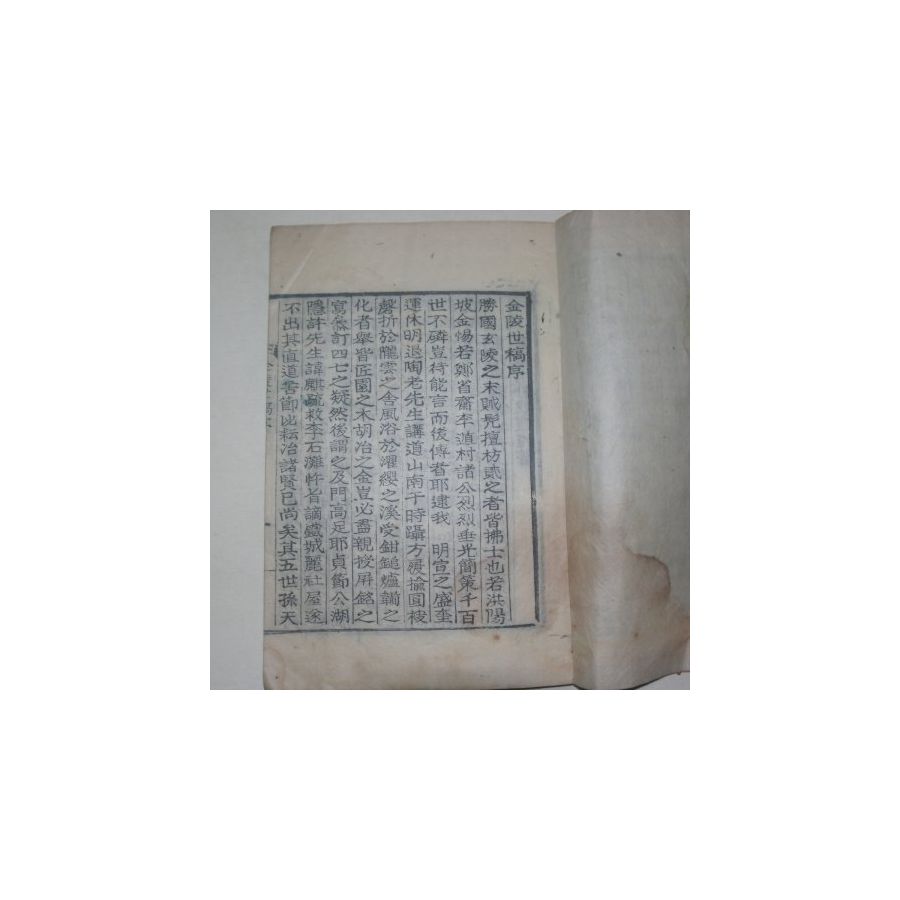 金陵世稿序
勝國玄陵之末賊髡擅枋貳之者皆拂士也若洪陽
坡金惕若鄭省齋李遁村諸公烈烈垂光簡策千百
世不磷豈待能言而後傳者耶逮我 明宣之盛奎
運休明退陶老先生講道山南于時躡方履揄圓袂
磬折於隴雲之舍風浴於濯纓之溪受鉗鎚爐鞴之
化者擧皆匠園之木胡冶之金豈必盡親授屛銘之
寫參訂四七之疑然後謂之及門高足耶貞節公湖
隱許先生諱麒疏救李石灘忤旨謫鐵城麗社屋遂
不出其直道苦節比耘冶諸賢已尚矣其五世孫天